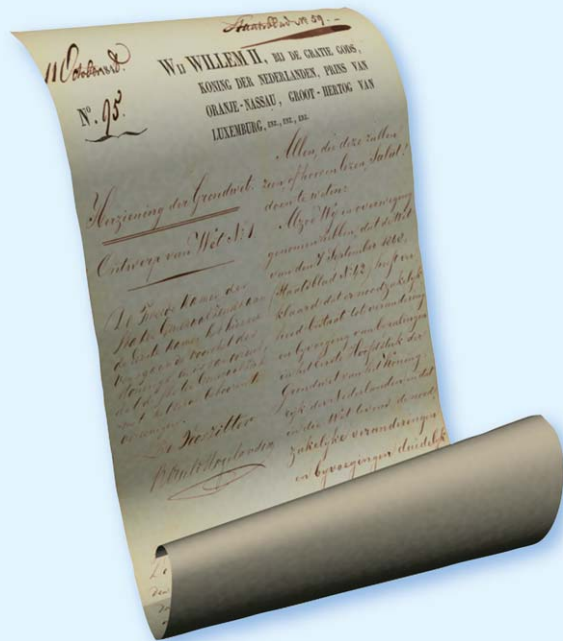 Staatsblad No 59.
11 October
No. 95.
WIJ WILLEM II, BIJ DE GRATIE GODS,
KONING DER NEDERLANDEN, PRINS VAN
ORANJE-NASSAU, GROOT-HERTOG VAN
LUXEMBURG, ENZ., ENZ., ENZ.
Herziening der Grondwet.
Ontwerp van Wet No 1
De Tweede Kamer der
Staten Generaal zendt aan
de Eerste Kamer het hierne
De Voorzitter
Allen, die deze zullen
zien, of hooren lezen, Salut!
doen te weten:
Alzoo Wij in overweging
genomen hebben, dat de Wet
van den 7 September 1848,
(Staatsblad No 42) heeft ver
klaard dat er noodzakelijk
heid bestaat tot verandering
en bijvoeging van bepalingen
in het eerste Hoofdstuk der
Grondwet van het Koning
rijk der Nederlanden en dat
in die Wet tevens de nood
zakelijke veranderingen
en bijvoegingen duidelijk